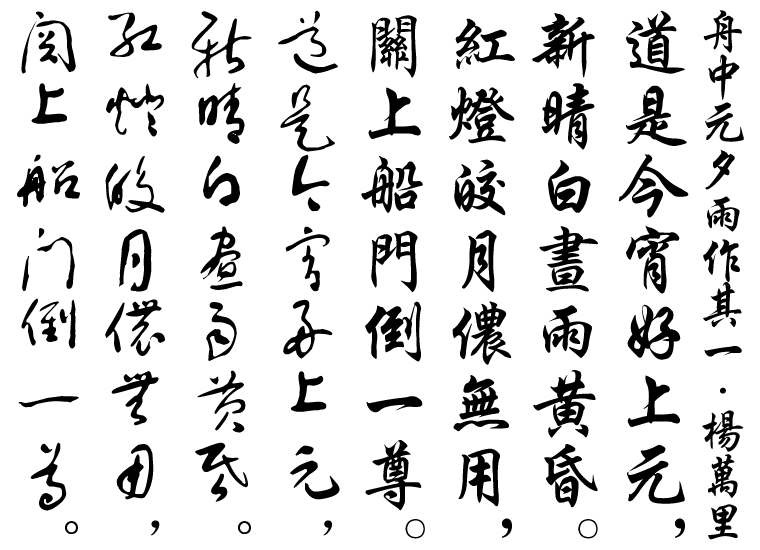 舟中元夕雨作其一·楊萬里
道是今宵好上元，
新晴白晝雨黃昏。
紅燈皎月儂無用，
關上船門倒一尊。
道是今宵好上元，
新晴白晝雨黃昏。
紅燈皎月儂無用，
關上船門倒一尊。